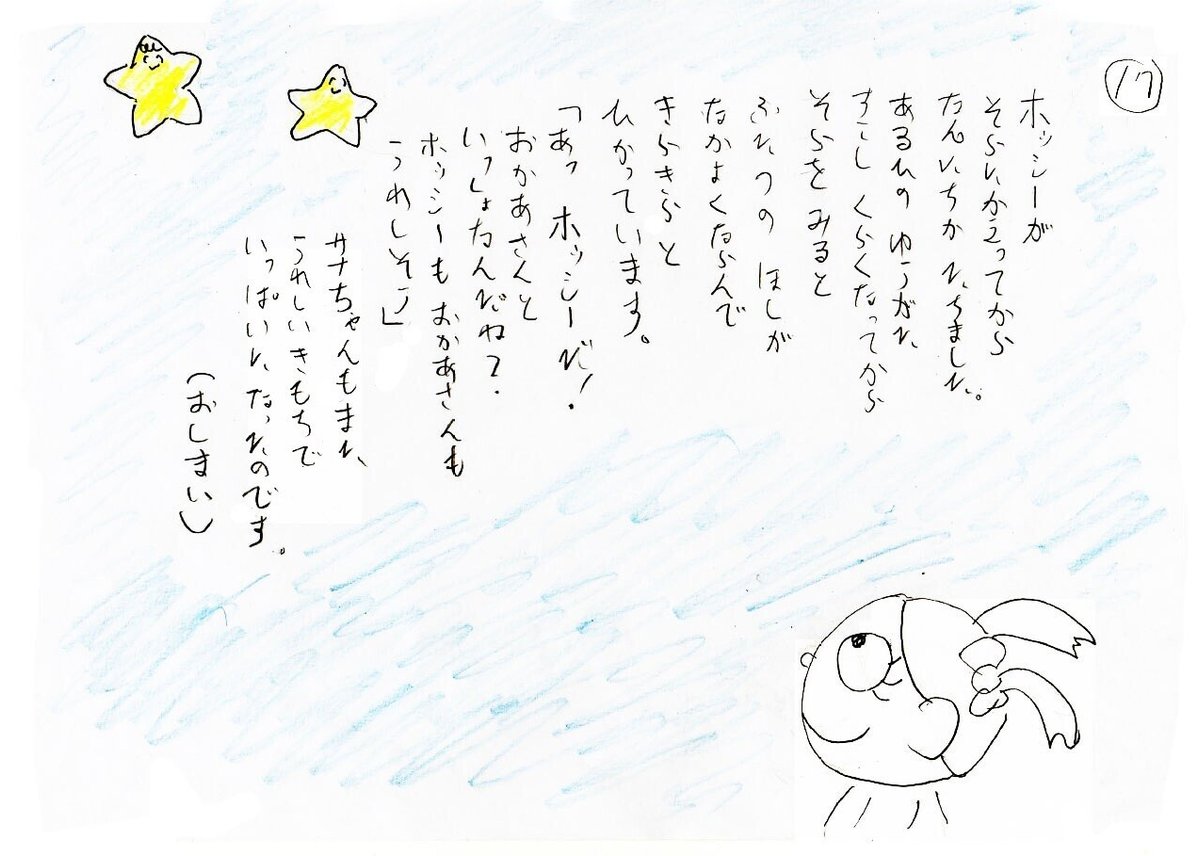 17
ホッシーが
そらにかえってから
なんにちか たちました。
あるひの ゆうがた、
すこし くらくなってから
そらを みると
ふたつの ほしが
なかよくならんで
きらきらと
ひかっています。
「あっ ホッシーだ!
おかあさんと
いっしょなんだね?
ホッシーも おかあさんも
うれしそう」
サナちゃんもまた、
うれしいきもちで
いっぱいに なったのです。
(おしまい)